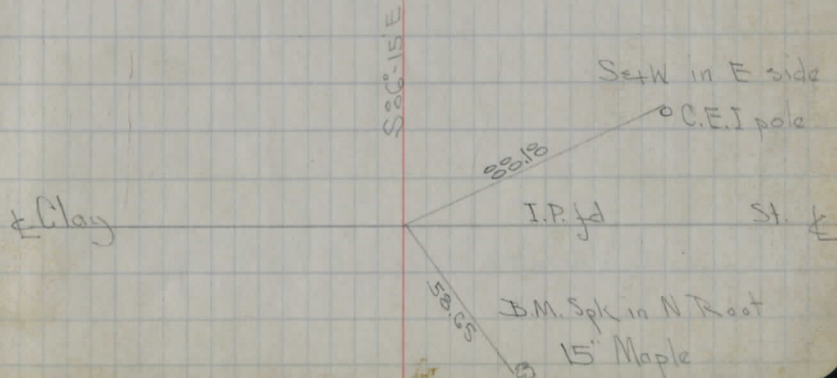 S86°-15'E
S&W in E side
C.E.I pole
88.18
℄ Clay I.P. fd St. ℄
58.65
B.M. Spk in N Root
15" Maple